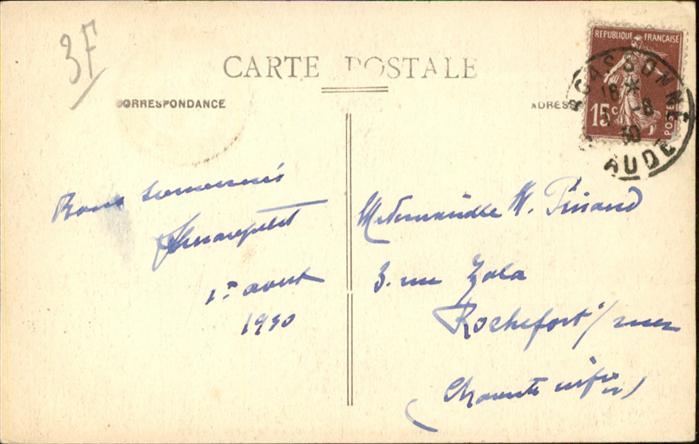 3F
CARTE POSTALE
CORRESPONDANCE
ADRESS
REPUBLIQUE FRANÇAISE
15c
POSTES
CARCASSONNE
16 *
-8
30
AUDE
Bons souvenirs
1er aout
1930
Mademoiselle
3. rue Zola
Rochefort s/ mer
(Charente infre)